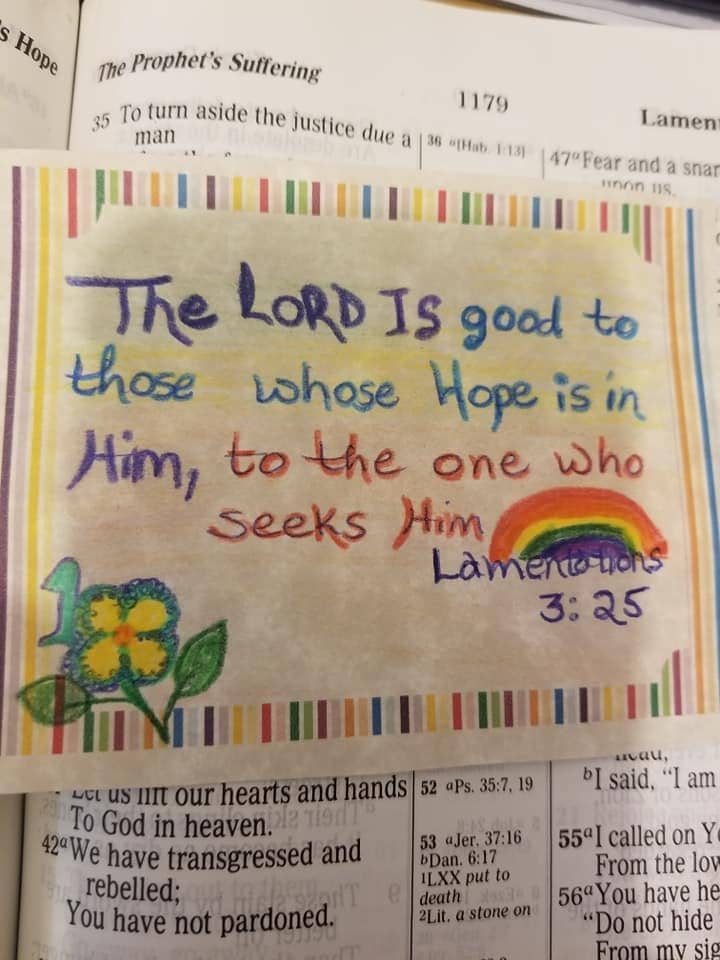 s Hope
The Prophet's Suffering
1179
35 To turn aside the justice due a
man
36 a[Hab. 1:13]
47aFear and a snar
upon us,
The LORD IS good to
those whose Hope is in
Him, to the one who
seeks Him
Lamentations
3:25
1
Let us lift our hearts and hands
To God in heaven.
42aWe have transgressed and
rebelled;
You have not pardoned.
52 aPs. 35:7, 19
53 aJer. 37:16
bDan. 6:17
1LXX put to
death
2Lit. a stone on
bI said, "I am
55aI called on Y
From the low
56aYou have he
"Do not hide
From my sig